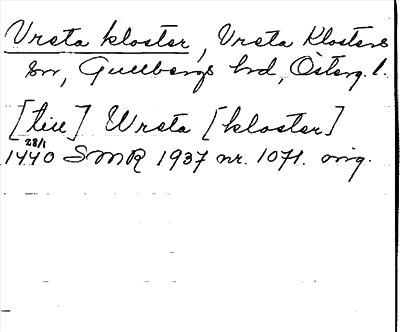 Vreta kloster, Vreta Klosters
sn, Gullbergs hd, Österg. l.
[till] Wreta [kloster]
28/1
1440 SMR 1937 nr. 1071. orig.